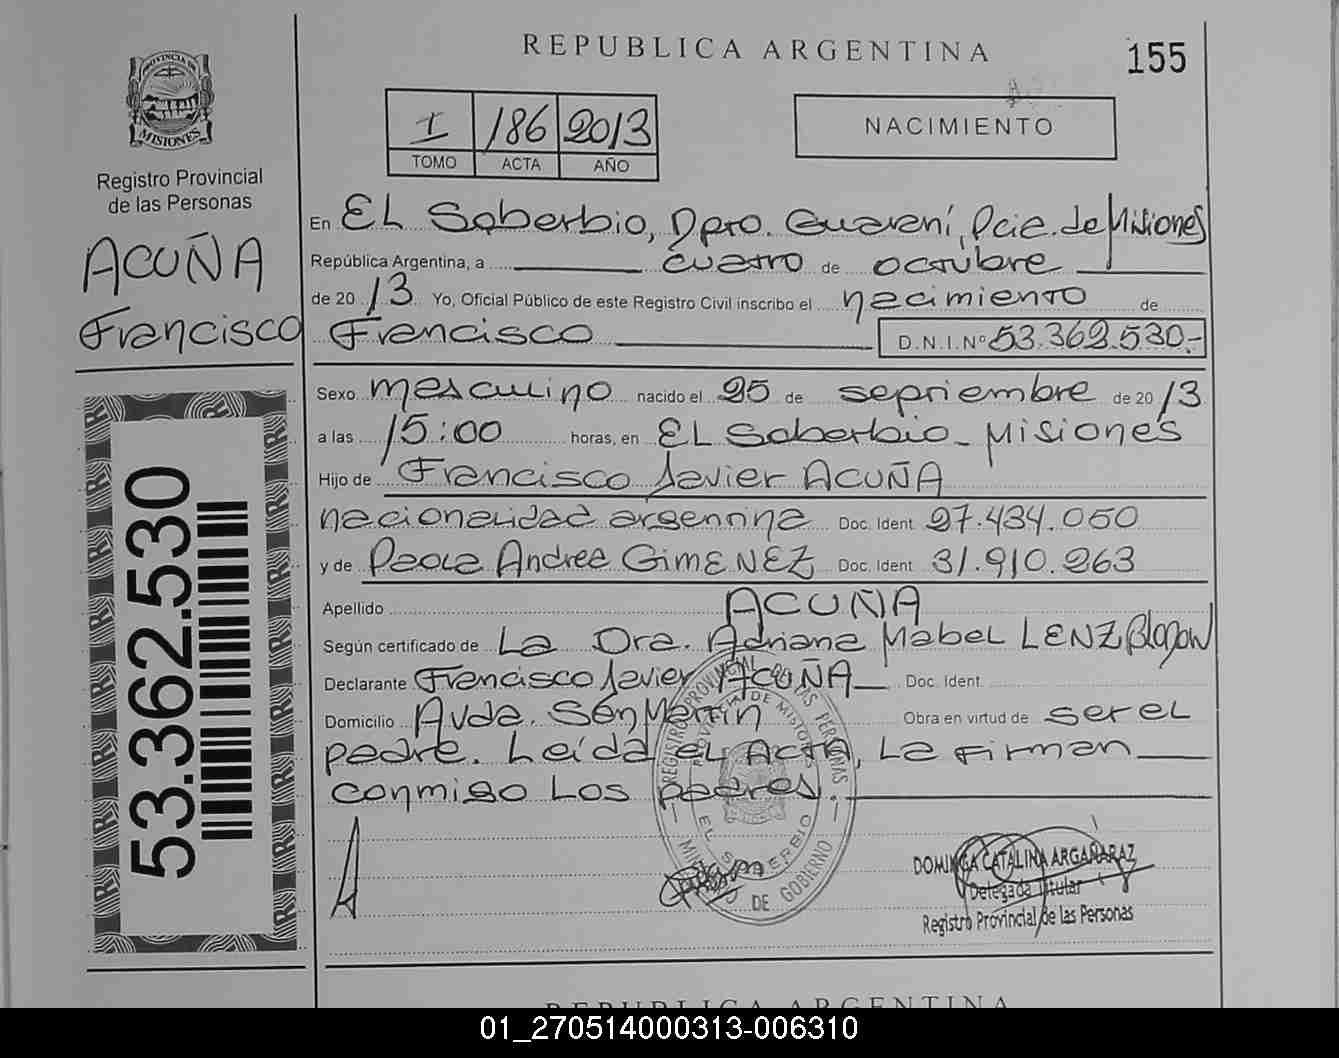 REPUBLICA ARGENTINA
155
PROVINCIA DE
MISIONES
Registro Provincial
de las Personas
ACUÑA
Francisco
53.362.530
I 186 2013
TOMO ACTA AÑO
NACIMIENTO
En EL Soberbio, Dpto. Guaraní, Pcia. de Misiones
República Argentina, a cuatro de octubre
de 20 13 Yo, Oficial Público de este Registro Civil inscribo el nacimiento de
Francisco D.N.I.Nº 53.362.530.-
Sexo masculino nacido el 25 de septiembre de 20 13
a las 15:00 horas, en EL Soberbio - Misiones
Hijo de Francisco Javier ACUÑA
nacionalidad argentina Doc. Ident 27.434.050
y de Paola Andrea GIMENEZ Doc. Ident 31.910.263
Apellido ACUÑA
Según certificado de La Dra. Adriana Mabel LENZ Blagow
Declarante Francisco Javier ACUÑA Doc. Ident.
Domicilio Avda. San Martin Obra en virtud de ser el
padre. Leída el Acta, La firman
conmigo Los padres.
REGISTRO PROVINCIAL DE LAS PERSONAS
PROVINCIA DE MISIONES
EL SOBERBIO
DE GOBIERNO
DOMINGA CATALINA ARGAÑARAZ
Delegada Titular
Registro Provincial de las Personas
REPUBLICA ARGENTINA
01_270514000313-006310